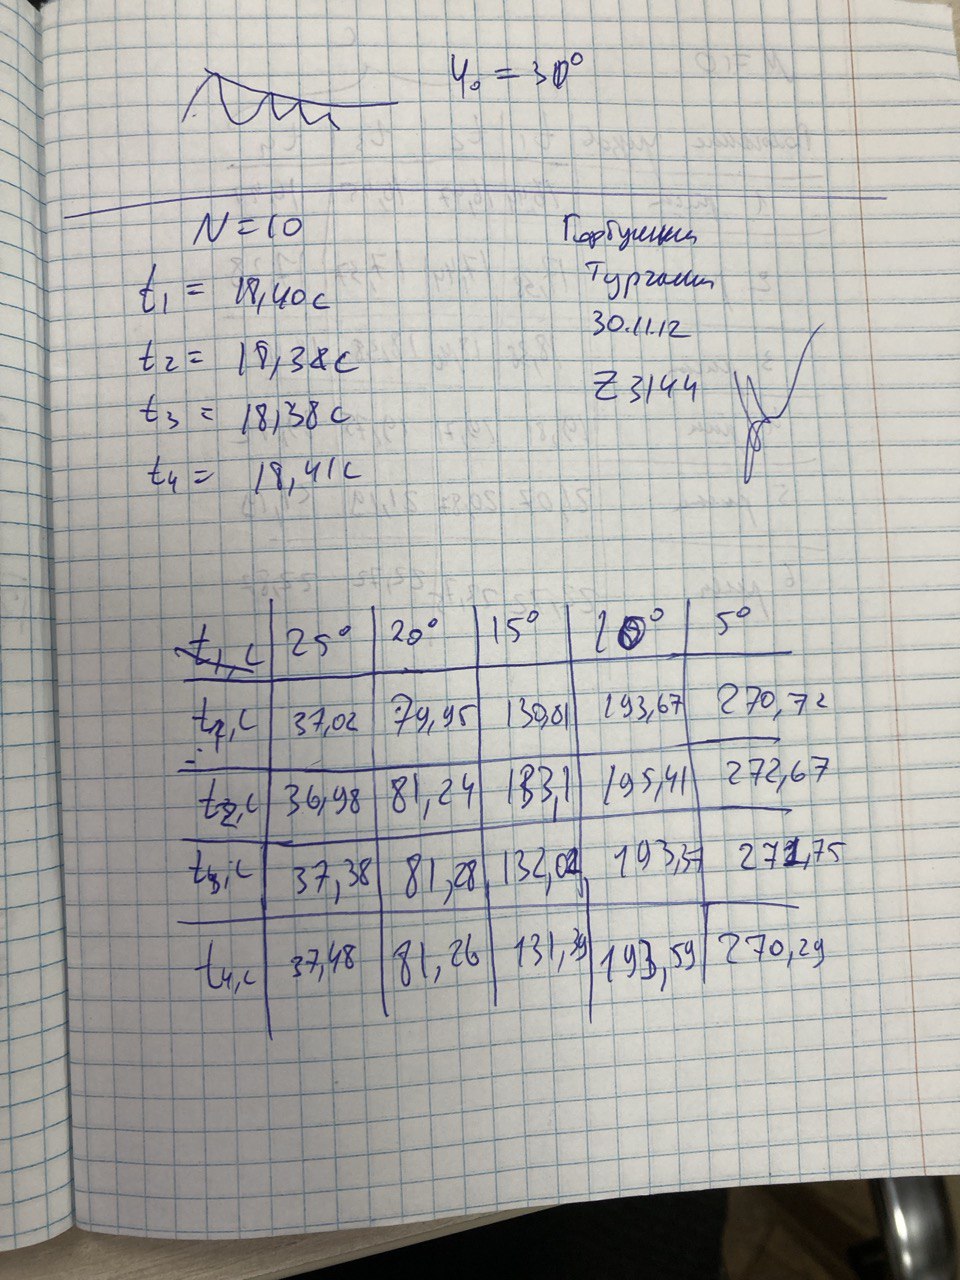 φ₀ = 30°
N = 10
t₁ = 18,40 с
t₂ = 18,38 с
t₃ = 18,38 с
t₄ = 18,41 с
30.11.12
Z3144
25° 20° 15° 10° 5°
t₁,с 37,02 79,95 130,01 193,67 270,72
t₂,с 36,98 81,24 133,1 195,41 272,67
t₃,с 37,38 81,28 132,02 193,37 271,75
t₄,с 37,48 81,26 131,39 193,59 270,29